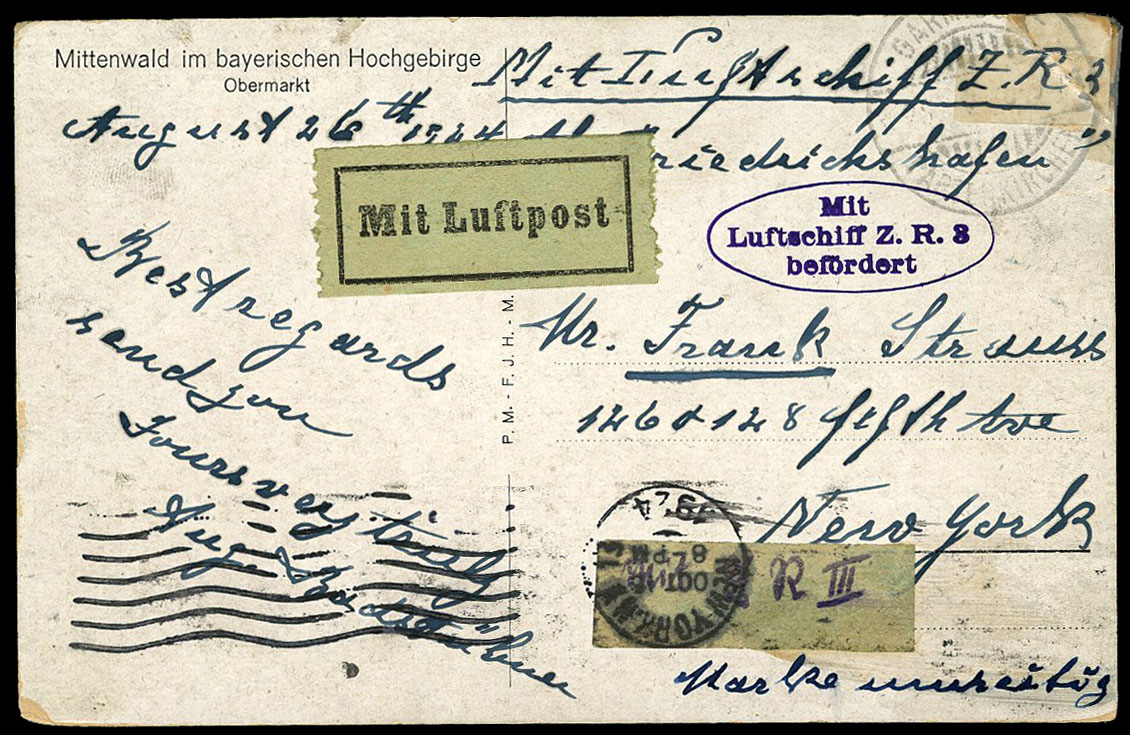 Mittenwald im bayerischen Hochgebirge
Obermarkt
Mit Luftschiff Z.R. 3
August 26th 1924
Friedrichshafen"
Mit Luftpost
Mit
Luftschiff Z. R. 3
befördert
Best regards
send you
Yours very truly
P. M. - F. J. H. - M.
Mr. Frank Strauss
126 & 128 fifth Ave
New York
1924
8 PM
OCT
NEW YORK, N.Y.
R III
Marke